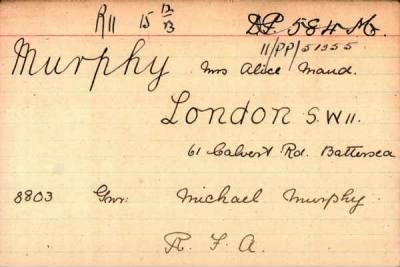 R11 15 12/13 D.P. 584 M.
11/PP/51355
Murphy Mrs Alice Maud.
London S.W 11.
61 Calvert Rd. Battersea
8803 Gnr. Michael Murphy.
R. F. A.